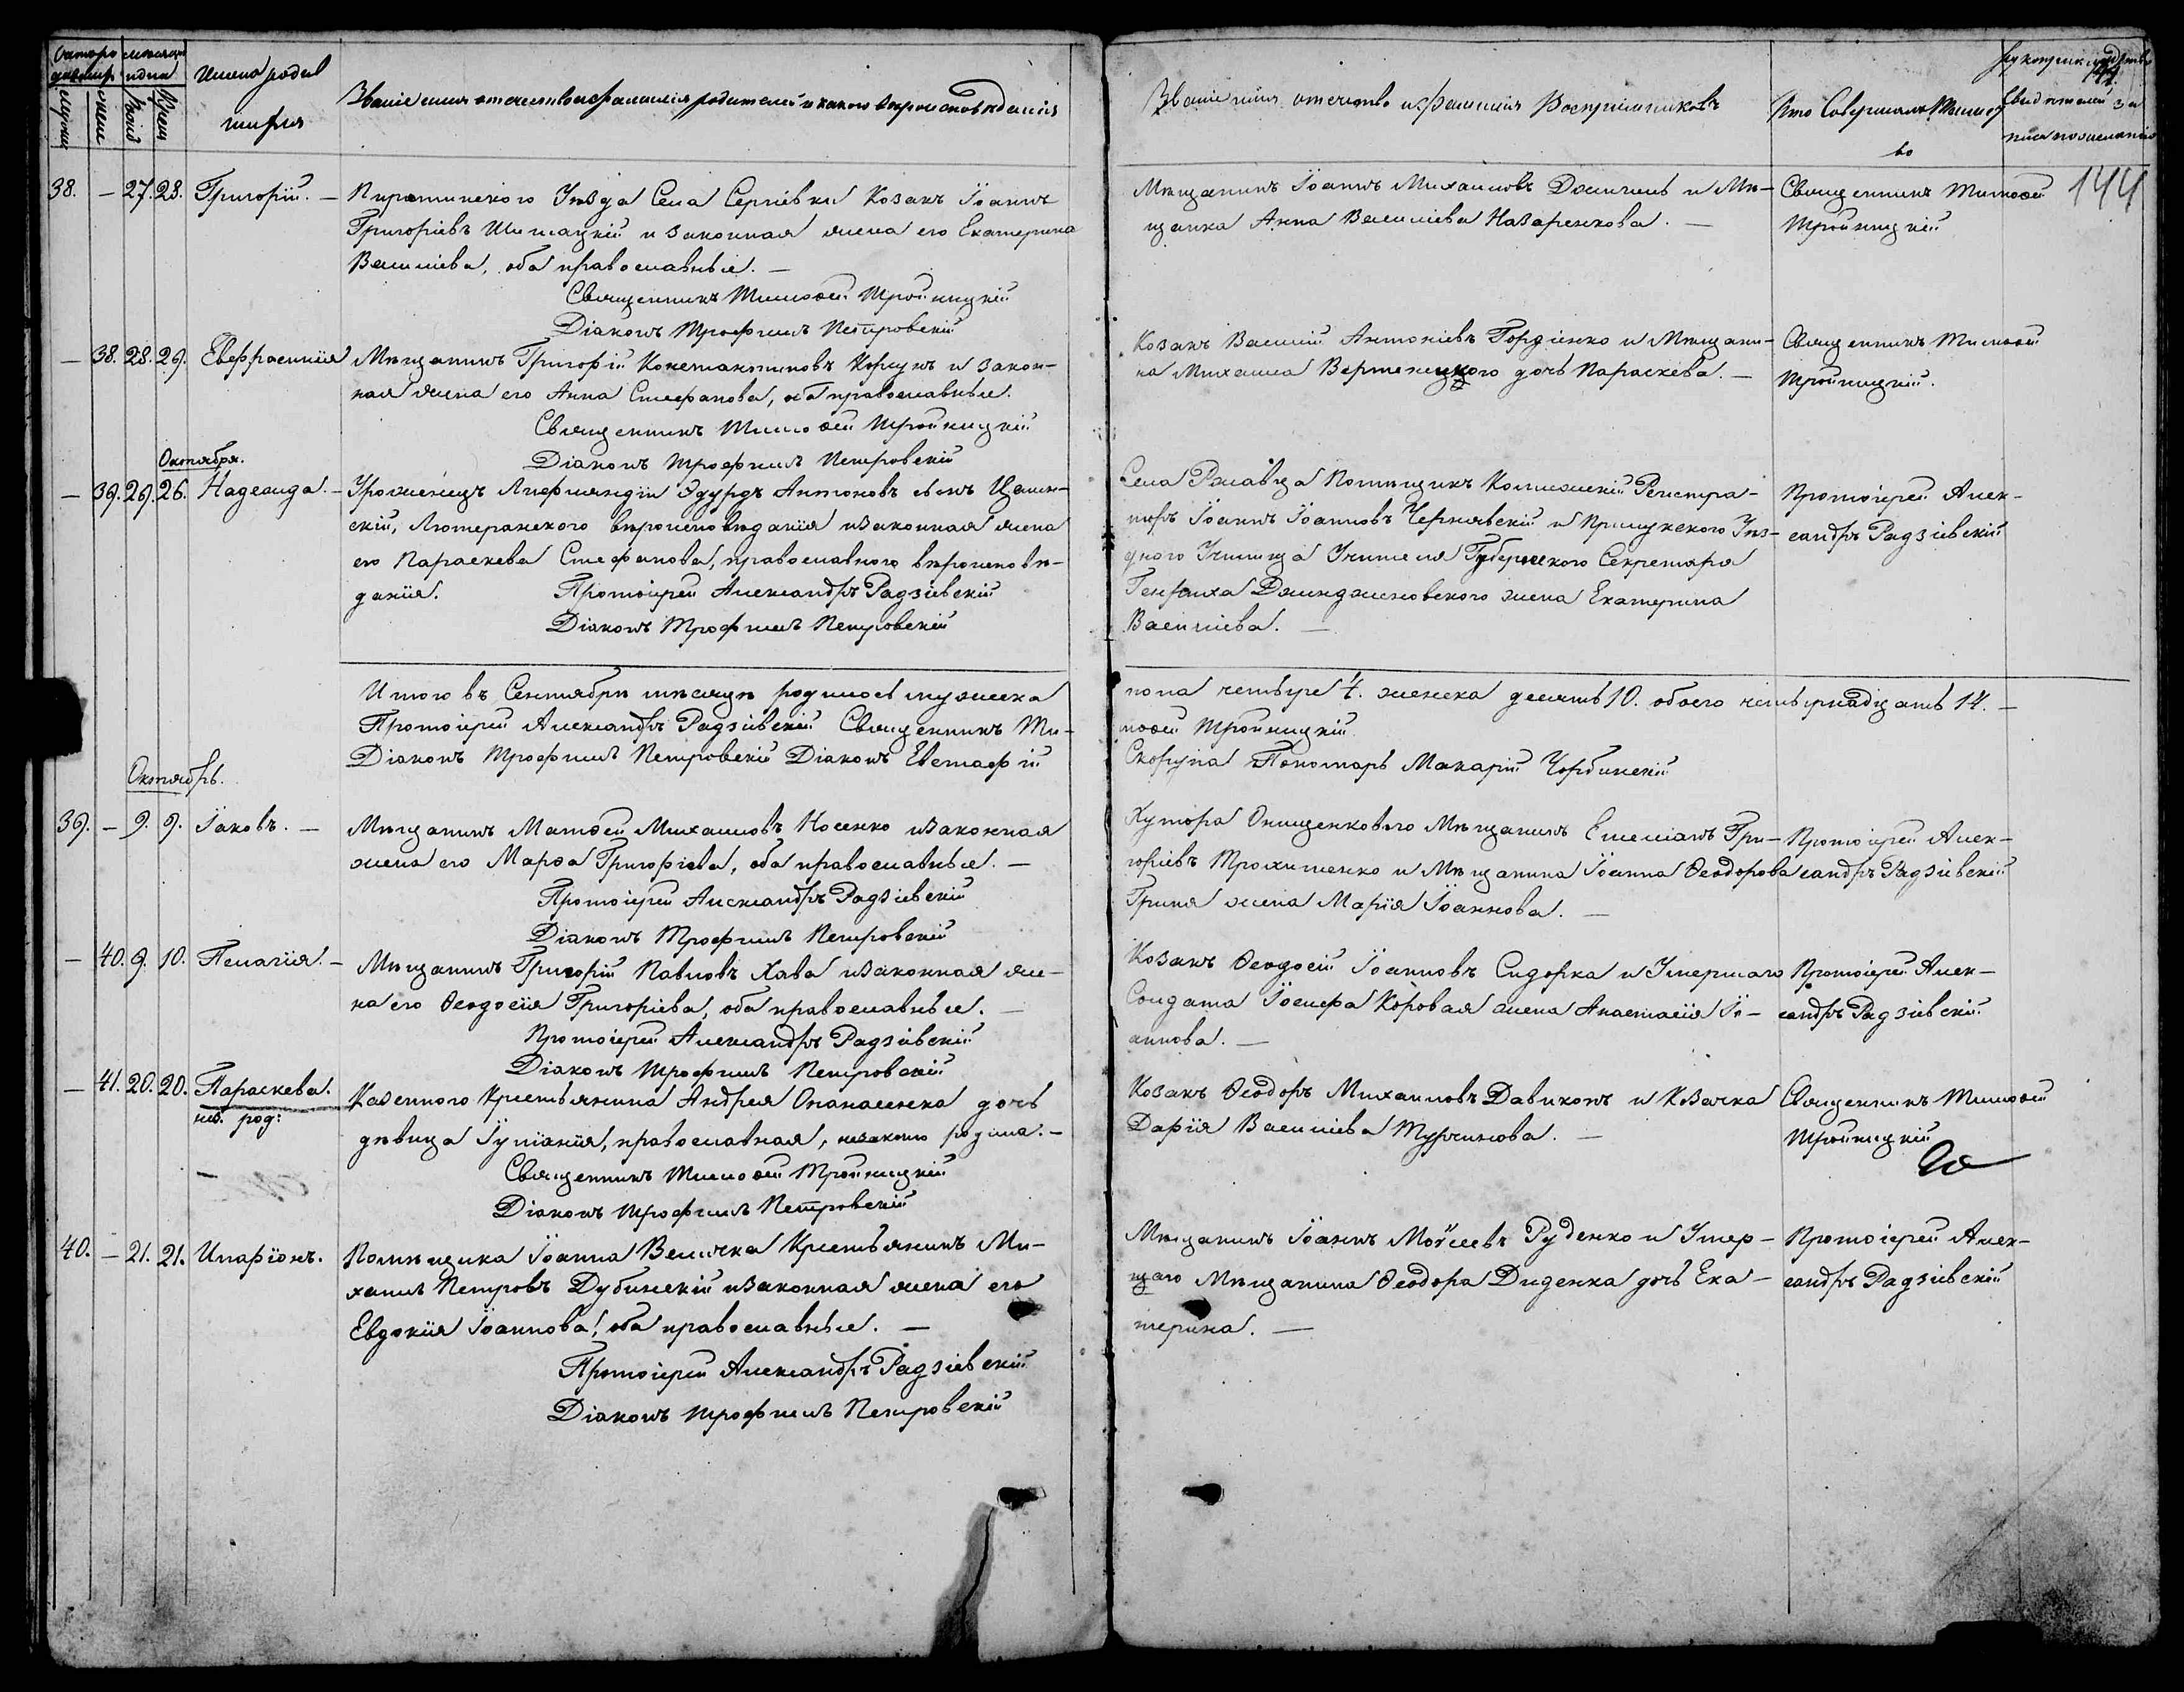 Имена родив
шихся
Званіе имя отечество и фамилія родителей и какого вѣроисповѣданія
Званіе имя отечество и фамилія Воспріемниковъ
Кто Совершалъ Таинст
во
144
38. — 27. 28. Григорій. —
Пирятинскаго Уѣзда Села Сергіевки Козакъ Іоаннъ
Григоріевъ и законная жена его Екатерина
Василіева, оба православные. —
Священникъ Тимоѳей Тройницкій
Діаконъ Трофимъ Петровскій
Мѣщанинъ Іоаннъ Михаиловъ и Мѣ-
щанка Анна Василіева Назаренкова. —
Священникъ Тимоѳей
Тройницкій
— 38. 28. 29. Евфросинія
Мѣщанинъ Григорій Константиновъ Коржъ и закон-
ная жена его Анна Стефанова, оба православные.
Священникъ Тимоѳей Тройницкій
Діаконъ Трофимъ Петровскій
Козакъ Василій Антоніевъ Гордіенко и Мѣщани-
на Михаила Вертецкого дочь Параскева. —
Священникъ Тимоѳей
Тройницкій.
Октября.
— 39. 29. 26. Надежда. —
Уроженецъ Лифляндіи Эдурдъ Антоновъ сынъ
скій, Лютеранского вѣроисповѣданія и законная жена
его Параскева Стефанова, православного вѣроисповѣ-
данія.
Протоіерей Александръ Радзіевскій
Діаконъ Трофимъ Петровскій
Села Ржавца Помѣщикъ Коллежскій Регистра-
торъ Іоаннъ Іоанновъ Чернявскій и Прилукского Уѣз-
дного Училища Учителя Губернского Секретаря
Генриха жена Екатерина
Василіева. —
Протоіерей Алек-
сандръ Радзіевскій
Итого въ Сентябрѣ мѣсяцѣ родилось мужеска
Протоіерей Александръ Радзіевскій Священникъ Ти-
Діаконъ Трофимъ Петровскій Діаконъ Евстафій
пола четыре 4. женска десять 10. обоего четырнадцать 14. —
моѳей Тройницкій
Скоруна Пономарь Макарій Чорбинскій
Октябрь.
39. — 9. 9. Іаковъ. —
Мѣщанинъ Матѳей Михаиловъ Носенко и законная
жена его Марѳа Григоріева, оба православные. —
Протоіерей Александръ Радзіевскій
Діаконъ Трофимъ Петровскій
Хутора Онищенкового Мѣщанинъ Емеліанъ Гри-
горіевъ Трохименко и Мѣщанина Іоанна Ѳеодорова
Гриня жена Марія Іоаннова. —
Протоіерей Алек-
сандръ Радзіевскій
— 40. 9. 10. Пелагія. —
Мѣщанинъ Григорій Павловъ Хава и законная же-
на его Ѳеодосія Григоріева, оба православные. —
Протоіерей Александръ Радзіевскій
Діаконъ Трофимъ Петровскій
Козакъ Ѳеодосій Іоанновъ Сидорка и Умершаго
Солдата Іосифа Коровая жена Анастасія Іо-
аннова. —
Протоіерей Алек-
сандръ Радзіевскій
— 41. 20. 20. Параскева.
нез. род:
Казенного Крестьянина Андрея Опанасенка дочь
дѣвица Іуліанія, православная, незаконно родила. —
Священникъ Тимоѳей Тройницкій
Діаконъ Трофимъ Петровскій
Козакъ Ѳеодоръ Михаиловъ Давиконъ и Козачка
Дарія Василіева Турчинова. —
Священникъ Тимоѳей
Тройницкій
40. — 21. 21. Иларіонъ.
Помѣщика Іоанна Велична Крестьянинъ Ми-
хаилъ Петровъ Дубинскій и законная жена его
Евдокія Іоаннова, оба православные. —
Протоіерей Александръ Радзіевскій
Діаконъ Трофимъ Петровскій
Мѣщанинъ Іоаннъ Моѵсеевъ Руденко и Умер-
шаго Мѣщанина Ѳеодора Диденка дочь Ека-
терина. —
Протоіерей Алек-
сандръ Радзіевскій